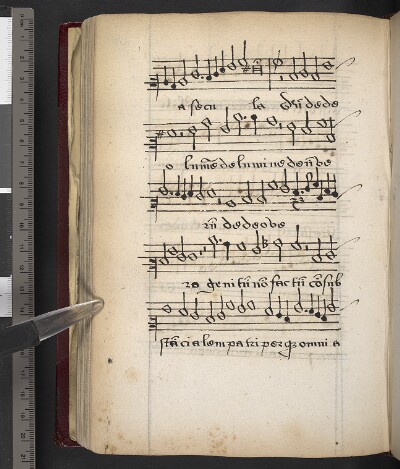 a secu la deū de de
o lumē de lumine deū ve
rū de deo ve
ro genitū nō factū cōsub
stācialem patri per qz omnia